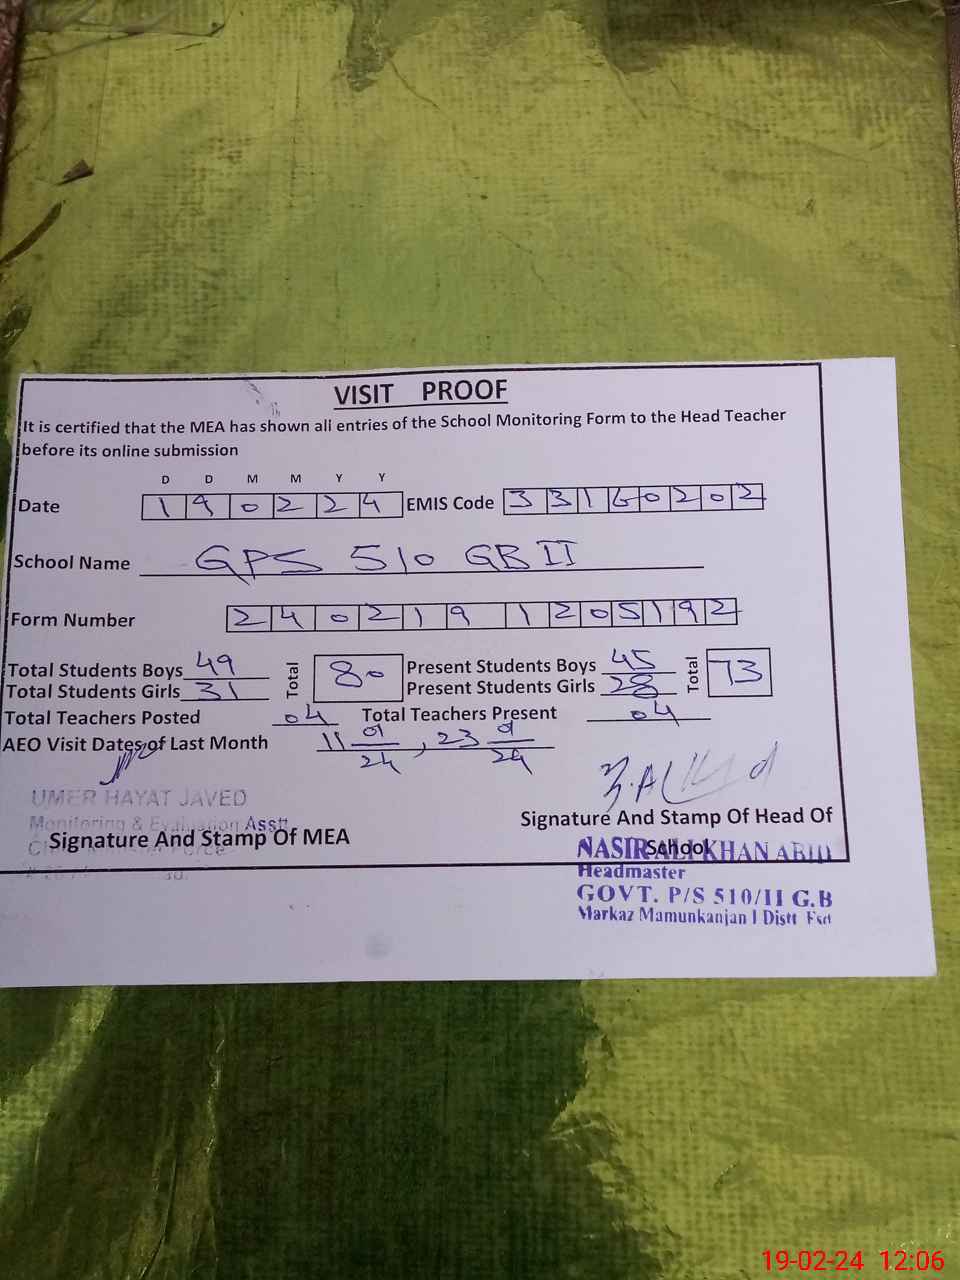 VISIT PROOF
It is certified that the MEA has shown all entries of the School Monitoring Form to the Head Teacher
before its online submission
D D M M Y Y
Date 190224 EMIS Code 33160202
School Name GPS 510 GB II
Form Number 240219 1205192
Total Students Boys 49 Total 80 Present Students Boys 45 Total 73
Total Students Girls 31 Present Students Girls 28
Total Teachers Posted 04 Total Teachers Present 04
AEO Visit Dates of Last Month 11 01/24, 23 01/24
UMER HAYAT JAVED
Monitoring & Evaluation Asstt
Signature And Stamp Of MEA
Signature And Stamp Of Head Of
School
NASIR ALI KHAN ABID
Headmaster
GOVT. P/S 510/II G.B
Markaz Mamunkanjan I Distt Fsd
19-02-24 12:06